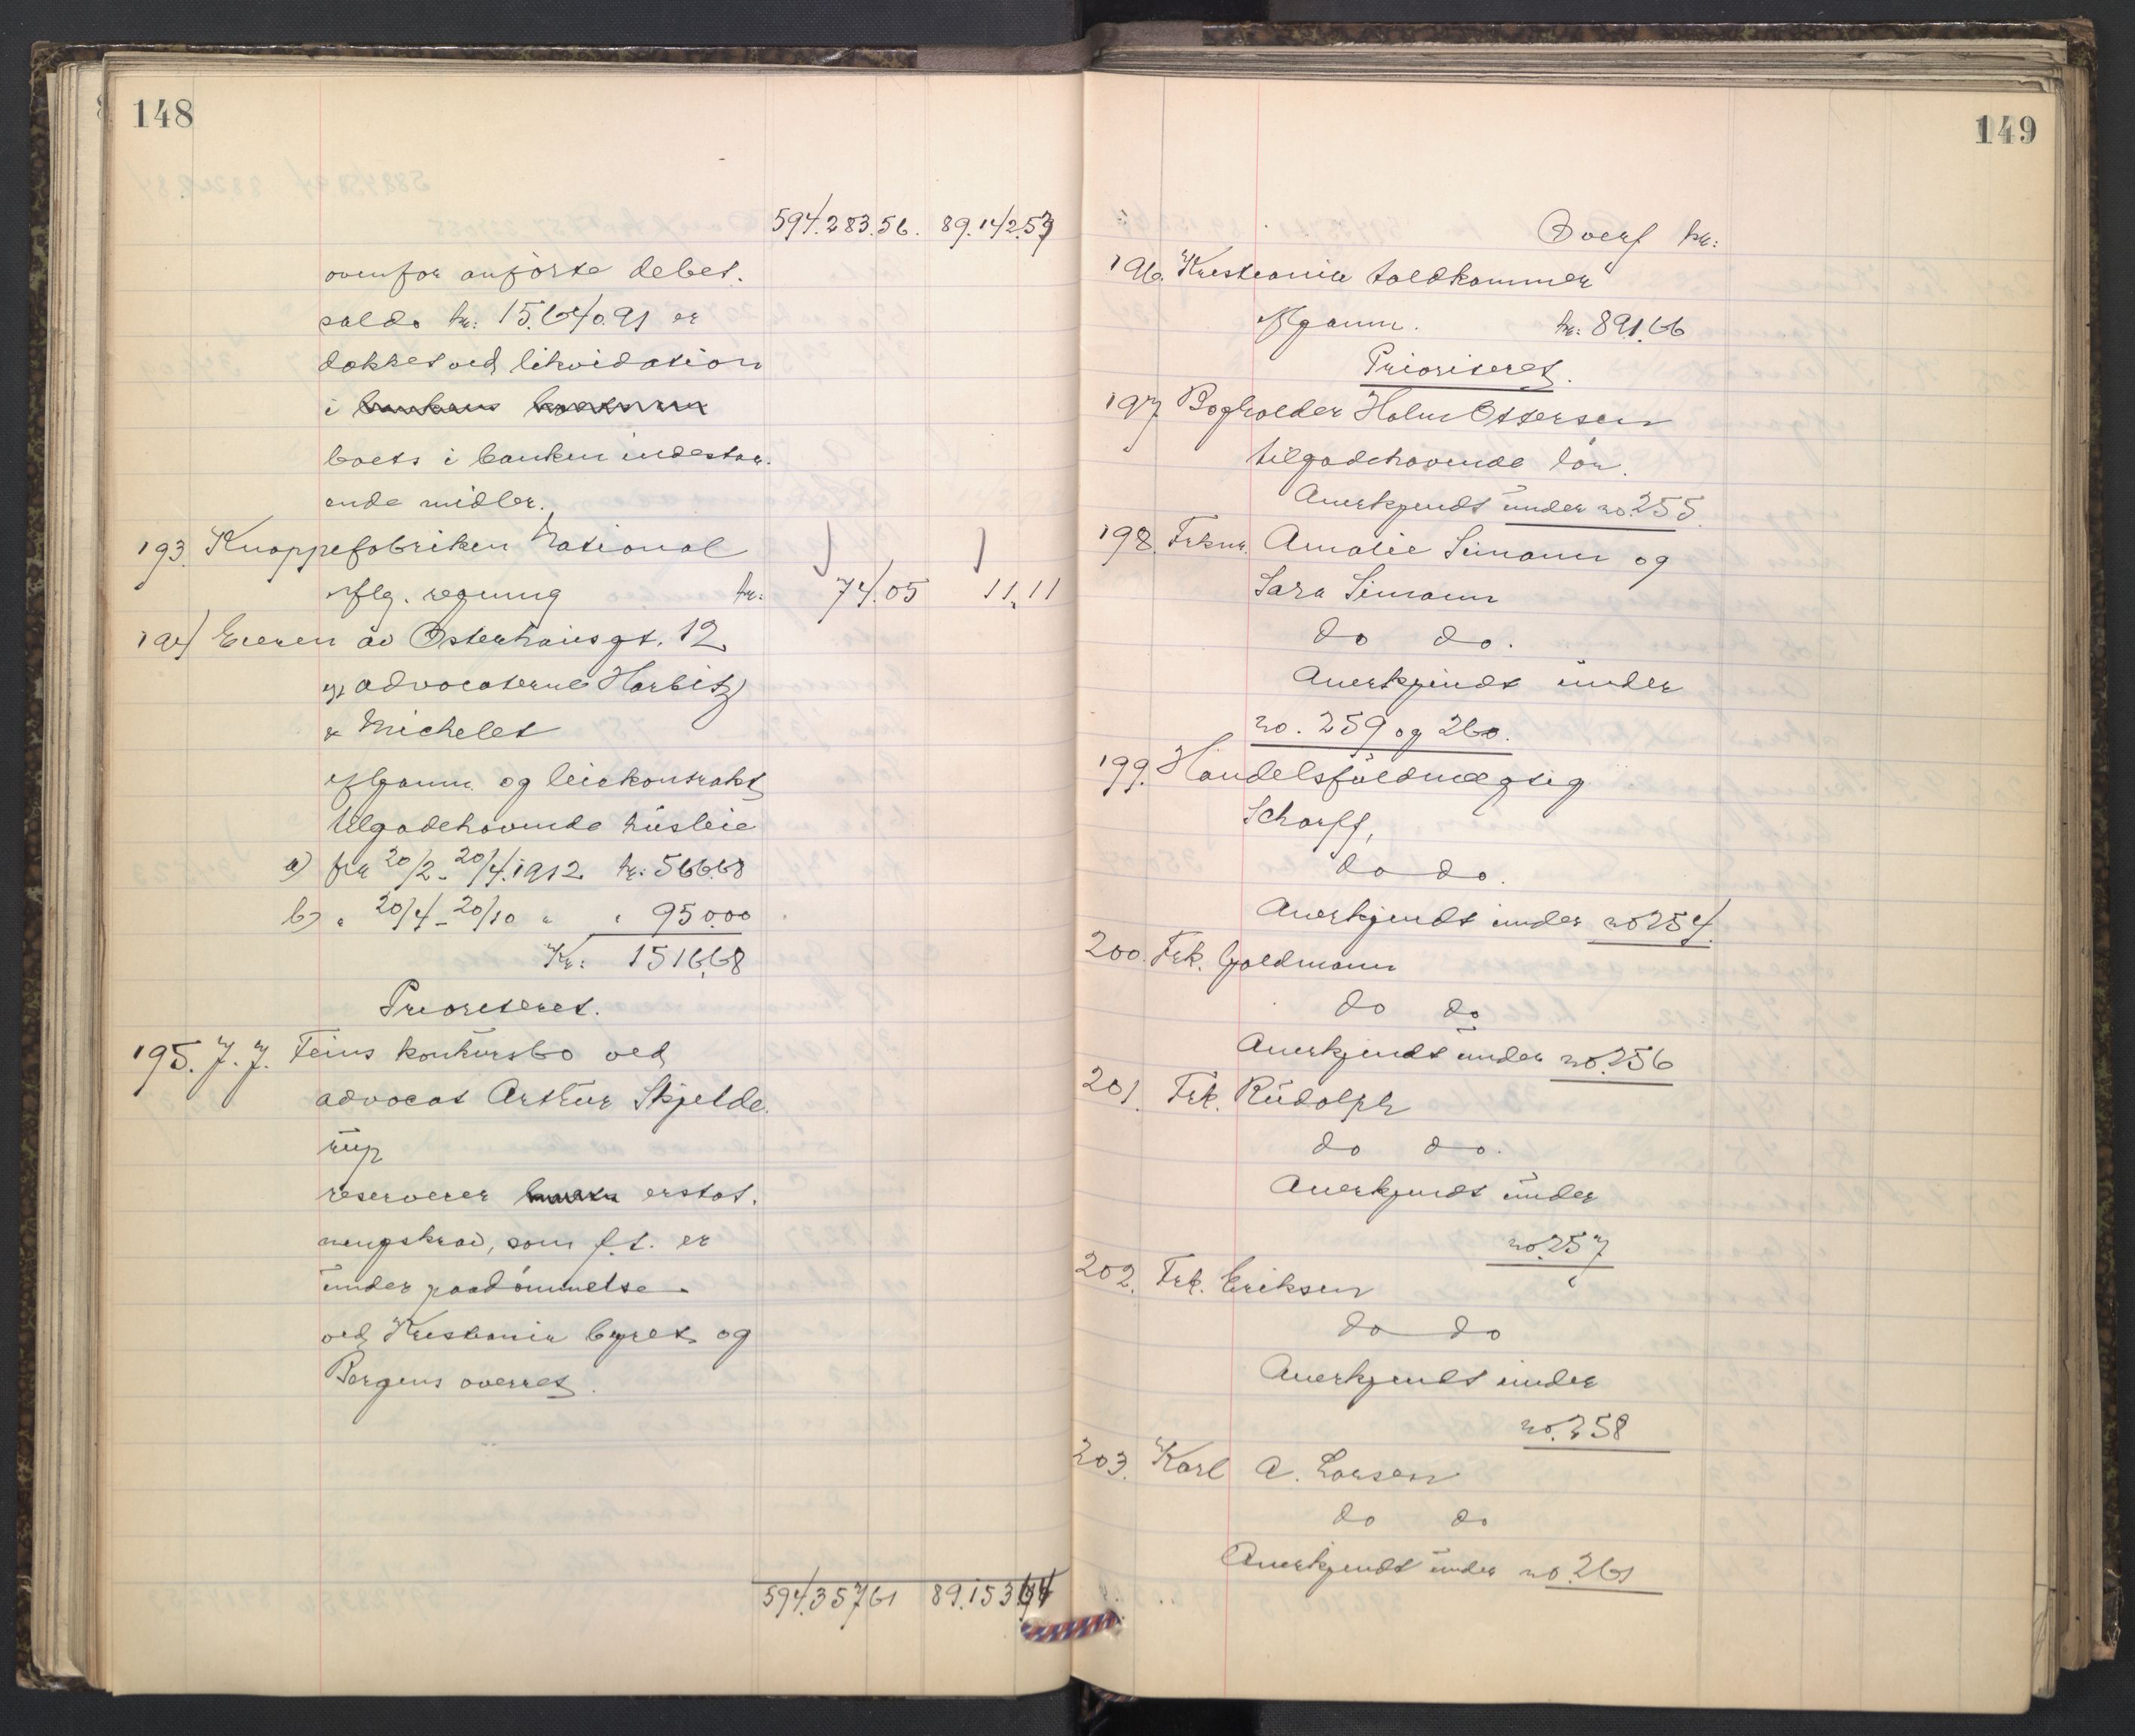 148
594.283.56. 89.142.53
ovenfor anførte debet-
saldo kr: 15.640.91 er
dækket ved likvidation
i
boets i banken indestaa-
ende midler.
193. Knappefabriken National
iflg. regning kr: 74.05 11.11
194) Eieren av Osterhausgt. 12
v/ advocaterne Harbitz
& Michelet
iflg anm. og leiekontrakt
tilgodehavende husleie
a) fra 20/2 - 20/4.1912. kr: 566.68
b) " 20/4 - 20/10 " " 950.00
Kr: 1516.68
Prioriteret.
195. J. J. Feins konkursbo ved
advocat Arthur Skjelde-
rup
reserverer erstat-
ningskrav, som f.t. er
under paadømmelse
ved Kristiania byret og
Bergens overret.
594.357.61 89.153.64
149
Overf kr:
196. Kristiania toldkammer
iflg anm. kr: 891.66
Prioriteret.
197. Bogholder Holm Ottersen
tilgodehavende løn.
Anerkjendt under no. 255.
198. Frknr. Amalie Simann og
Sara Simann
do do.
Anerkjendt under
no. 259 og 260.
199. Handelsfuldmægtig
Scharff,
do do.
Anerkjendt under no 254.
200. Frk. Goldmann
do do
Anerkjendt under no. 256
201. Frk. Rudolph
do do.
Anerkjendt under
no. 257
202. Frk. Eriksen
do do
Anerkjendt under
no. 258
203. Karl A. Larsen
do do
Anerkjendt under no. 261